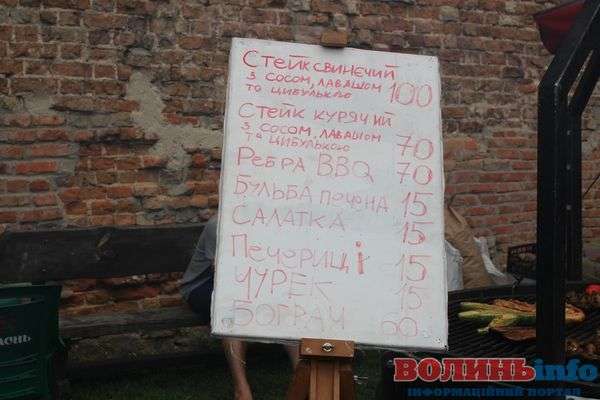 Стейк свинєчий
з сосом, лавашом
то цибулькою 100
Стейк курячий
з сосом, лавашом
та цибулькою 70
Ребра BBQ 70
Бульба печена 15
Салатка 15
Печериці 15
Чурек 15
Бограч
ВОЛИНЬinfo
ІНФОРМАЦІЙНИЙ ПОРТАЛ